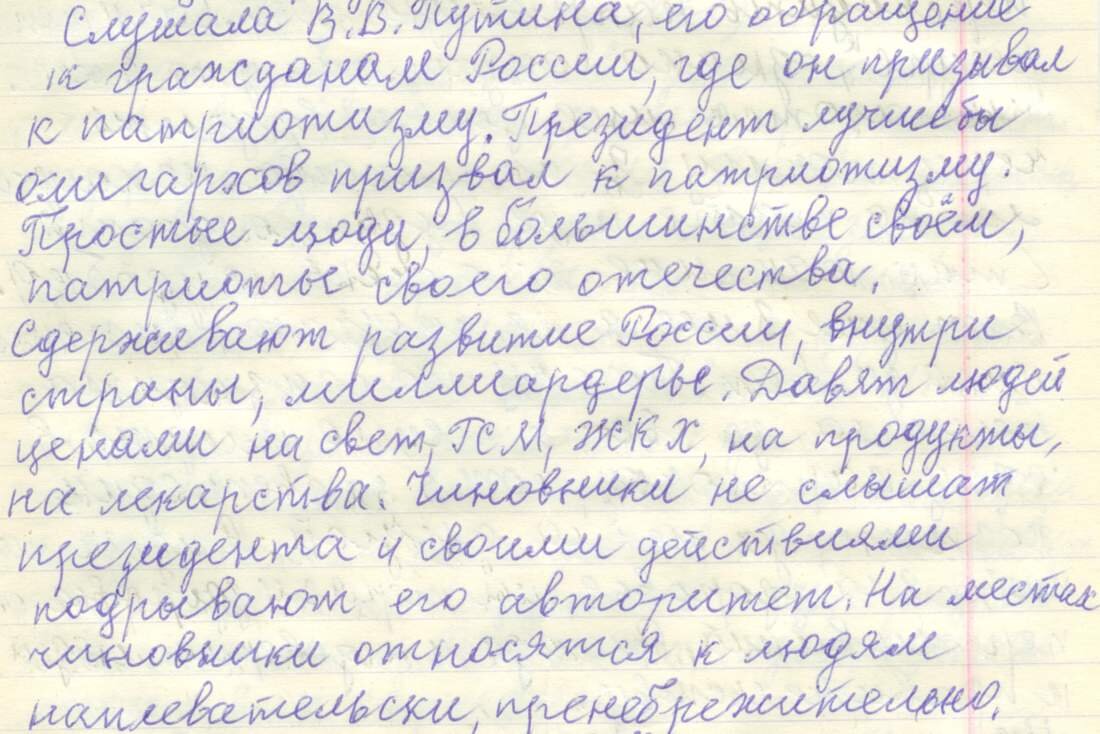 Слушала В.В.Путина, его обращение
к гражданам России, где он призывал
к патриотизму. Президент лучше бы
олигархов призвал к патриотизму.
Простые люди, в большинстве своём,
патриоты своего отечества.
Сдерживают развитие России, внутри
страны, миллиардеры. Давят людей
ценами на свет, ГСМ, ЖКХ, на продукты,
на лекарства. Чиновники не слышат
президента и своими действиями
подрывают его авторитет. На местах
чиновники относятся к людям
наплевательски, пренебрежительно.